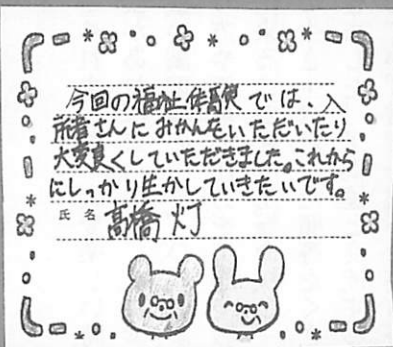 今回の福祉体験では、入
所者さんにみかんをいただいたり
大変良くしていただきました。これから
にしっかり生かしていきたいです。
氏名 高橋灯